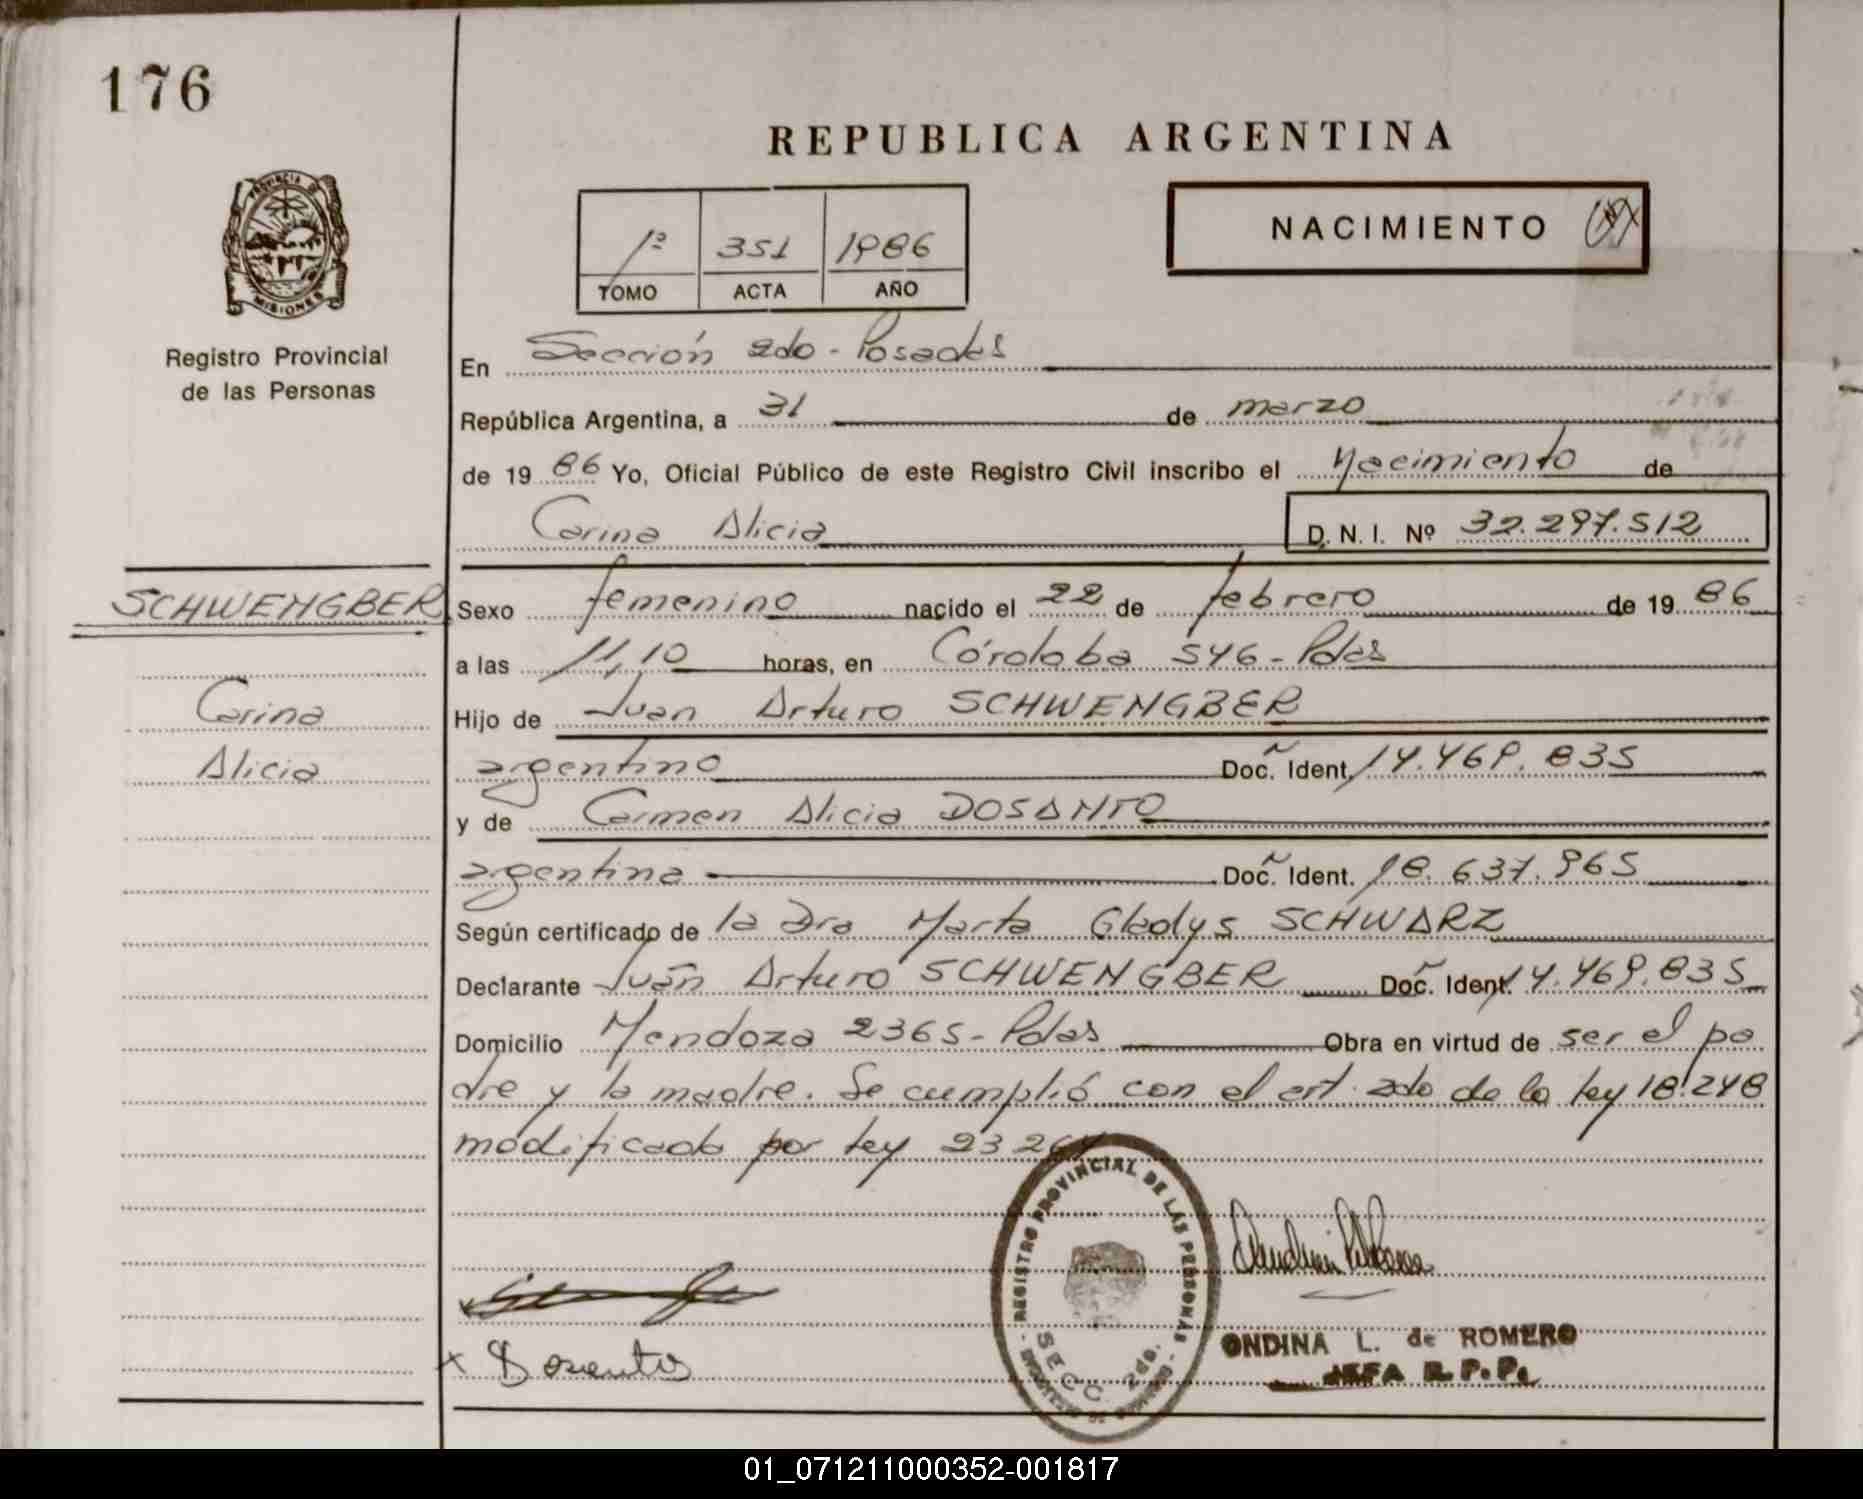 176
REPUBLICA ARGENTINA
1º 351 1986
TOMO ACTA AÑO
NACIMIENTO
PROVINCIA DE
MISIONES
Registro Provincial
de las Personas
En Sección 2do - Posadas
República Argentina, a 31 de marzo
de 19 86 Yo, Oficial Público de este Registro Civil inscribo el Nacimiento de
Carina Alicia D. N. I. Nº 32.297.512
SCHWENGBER
Carina
Alicia
Sexo femenino nacido el 22 de febrero de 19 86
a las 11,10 horas, en Córdoba 546 - Pdas
Hijo de Juan Arturo SCHWENGBER
argentino Doc. Ident. 14.469.835
y de Carmen Alicia DOSANTO
argentina Doc. Ident. 18.637.965
Según certificado de la Dra Marta Gladys SCHWARZ
Declarante Juan Arturo SCHWENGBER Doc. Ident. 14.469.835
Domicilio Mendoza 2365 - Pdas Obra en virtud de ser el pa
dre y la madre. Se cumplió con el art. 2do de la ley 18.248
modificada por ley 23 264
REGISTRO PROVINCIAL DE LAS PERSONAS
SECC. 2da.
x Dosantos
ONDINA L. de ROMERO
JEFA R.P.P.
01_071211000352-001817